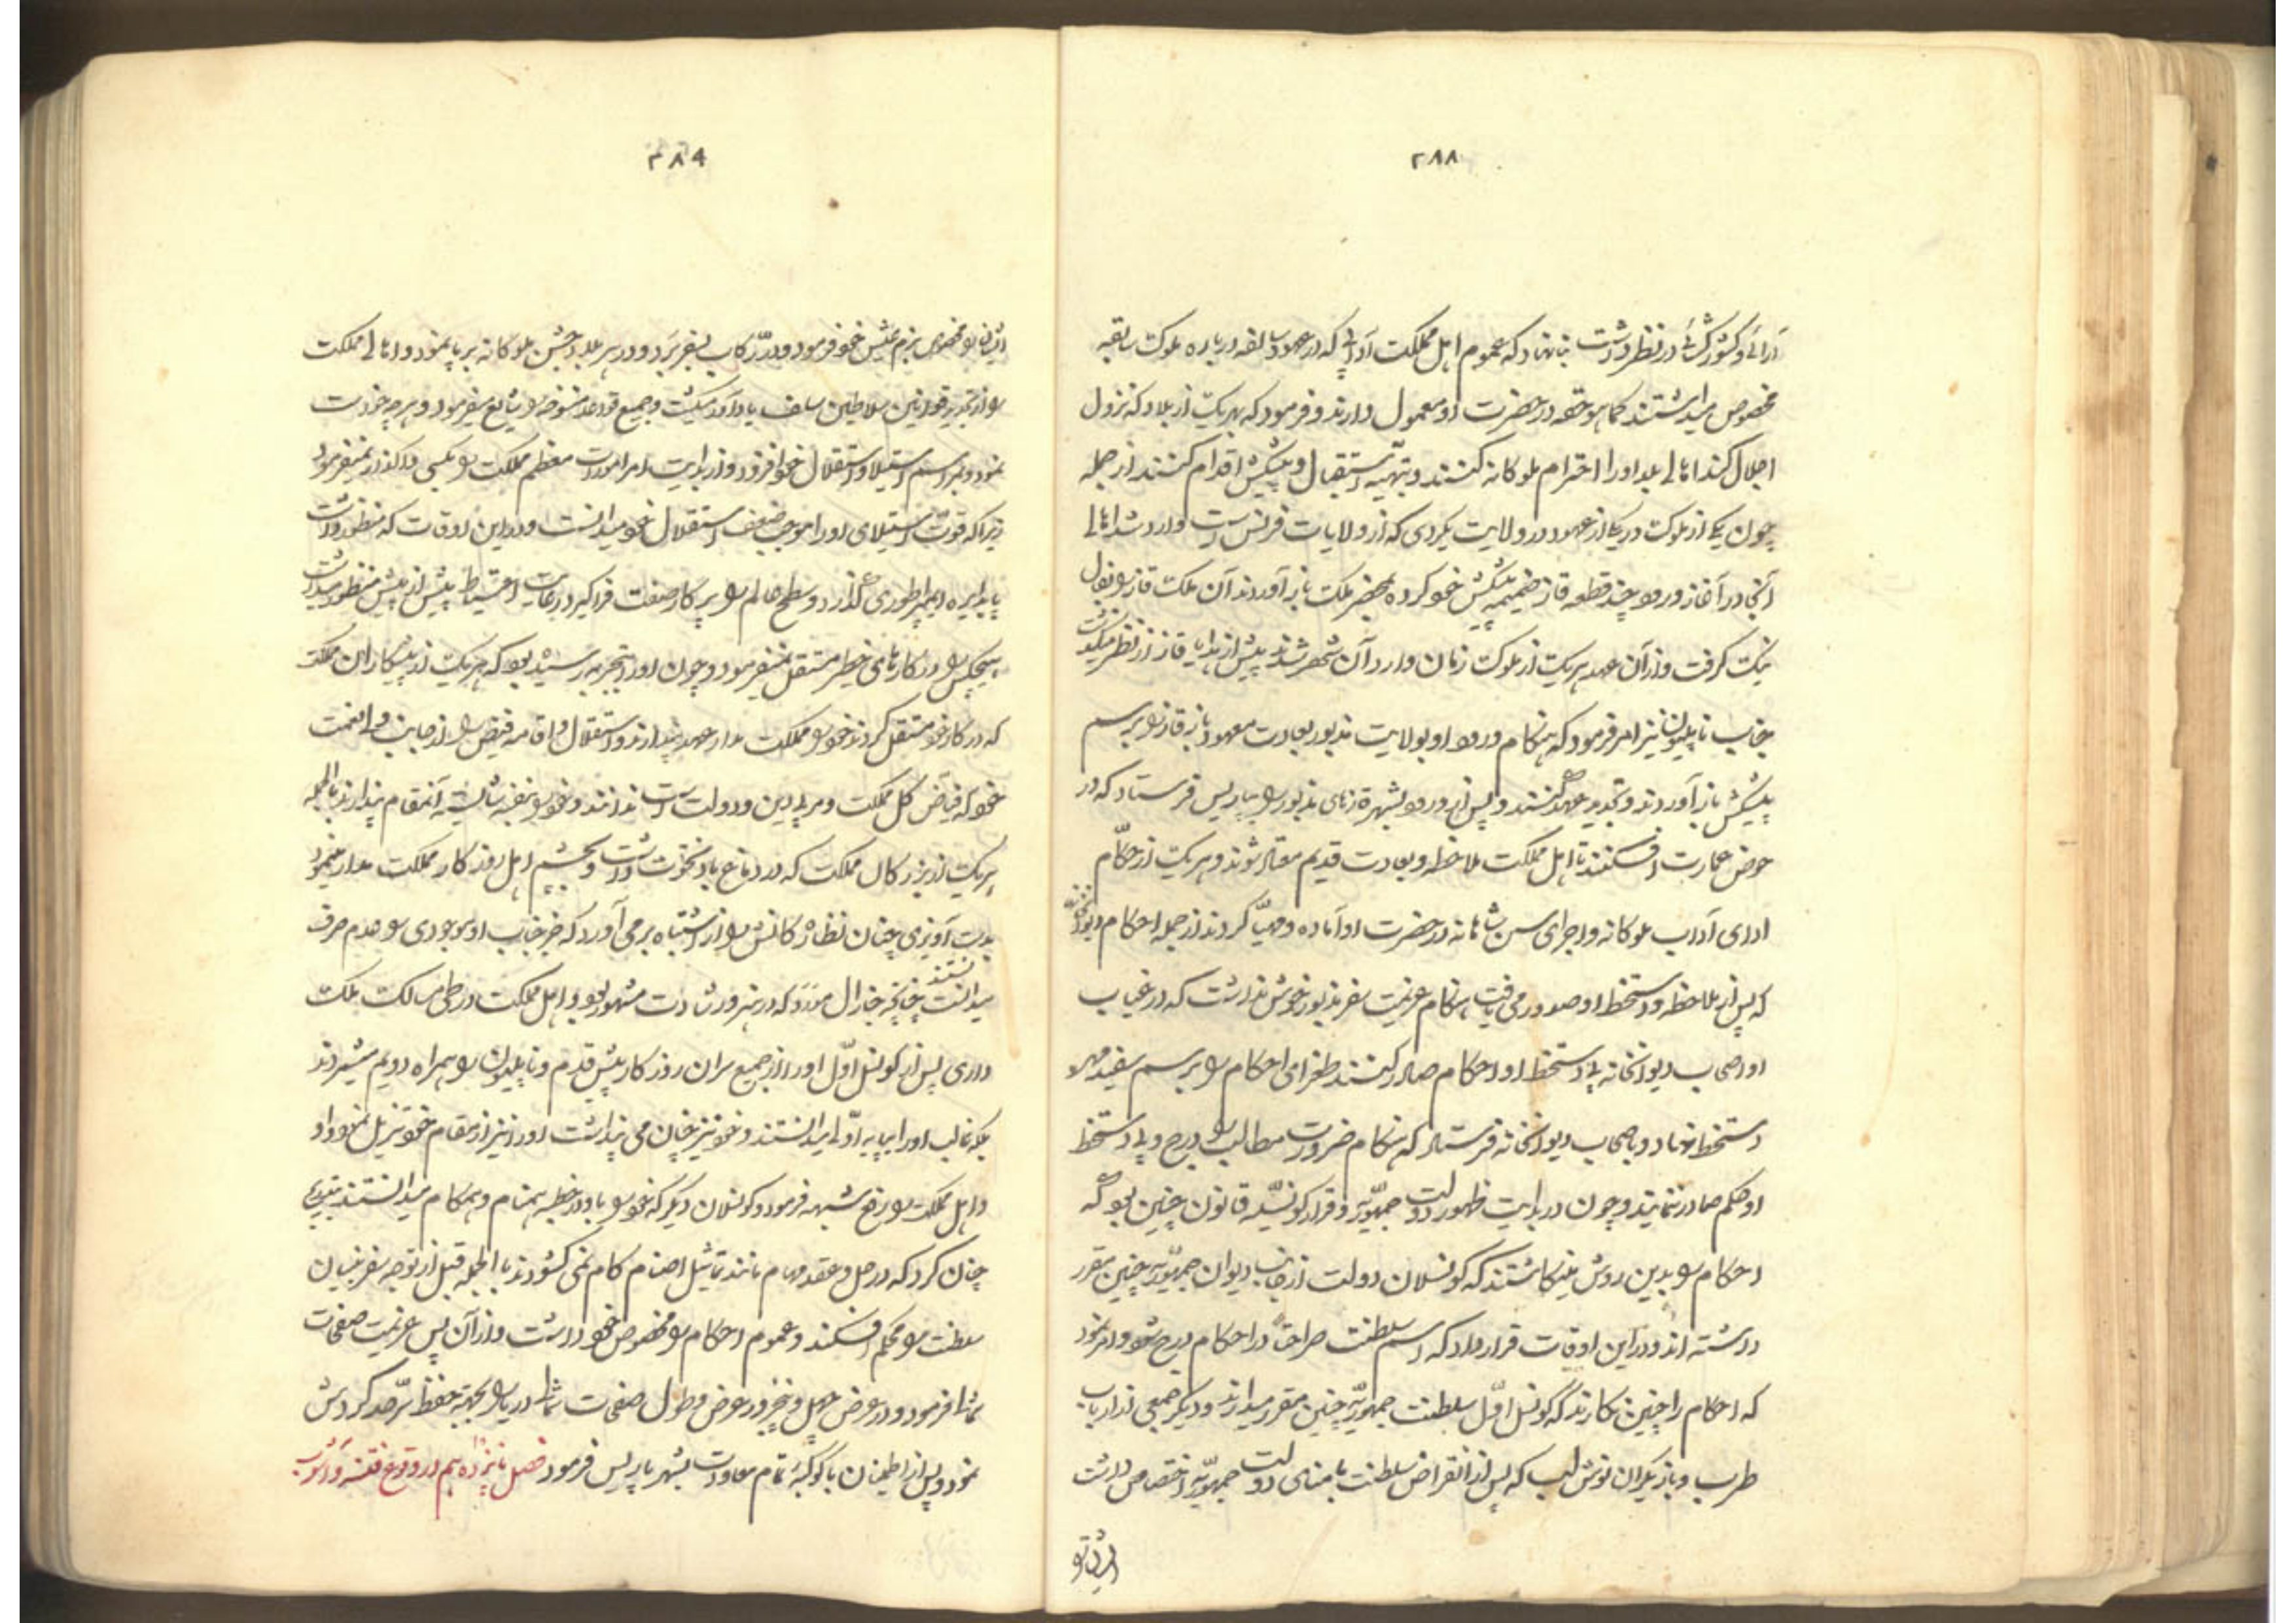 ۲۸۸
آرائی و کشورگشائی در نظر داشت بنا نهاد که عموم اهل مملکت آدابی که در عهود سالفه درباره ملوک سابقه
مخصوص میداشتند کما هو حقه در حضرت او معمول دارند و فرمود که بهر یک از بلاد که نزول
اجلال کند اهالی بلد او را احترام ملوکانه کنند و بتهیه استقبال و پیشکش اقدام کنند از جمله
چون یکی از ملوک در یکی از عهود در ولایت پکردی که از ولایات فرانس است وارد شد اهالی
آنجا در آغاز ورود چند قطعه قاز ضمیمه پیشکش خود کرده بمحضر ملک باز آوردند آن ملک قاز را بفال
نیک گرفت و از آن عهد هر یک از ملوک زمان وارد آن شهر شدند پیش از هدایا قاز از نظر میگذشت
جناب ناپلیون نیز امر فرمود که هنگام ورود او بولایت مذبور بعادت معهود باز قاز را برسم
پیشکش باز آوردند و تجدید عهد کنند و پس از ورود بشهر قازهای مذبور را بپاریس فرستاد که در
حوض عمارت افکنند تا اهل مملکت ملاحظه و بعادت قدیم معتاد شوند و هر یک از حکام
ادای آداب ملوکانه و اجرای سنن شاهانه در حضرت او آماده و مهیا کردند از جمله احکام دیوانخانه
که پس از ملاحظه و دستخط او صدور می یافت هنگام عزیمت سفر مذبور خوش نداشت که در غیاب
او اصحاب دیوانخانه بی دستخط او احکام صادر کنند طغرای احکام را برسم سفید مهر
دستخط نهاد و باصحاب دیوانخانه فرستاد که هنگام ضرورت مطالب را درج و بی دستخط
او حکم صادر ننمایند و چون در بدایت ظهور دولت جمهوریه و قرار کونسلیه قانون چنین بود که
احکام را بدین روش مینگاشتند که کونسلان دولت از جانب دیوان جمهوریه چنین مقرر
داشته اند در این اوقات قرار داد که اسم سلطنت صراحتاً در احکام درج شود و امر نمود
که احکام را چنین نگارند که کونسل اول سلطنت جمهوریه چنین مقرر میدارند و دیگر جمعی از ارباب
طرب و بازیگران نوش لب که پس از انقراض سلطنت با منای دولت جمهوریه اختصاص داشت
ایشان را
۲۸۹
ایشان را مخصوص بزم عیش خود فرمود و در رکاب بسفر برد و در هر بلد جشن ملوکانه بر پا نمود و اهالی مملکت
را از تجدید قوانین سلاطین سلف یادآور میگشت و جمیع قواعد منسوخه را شایع میفرمود و هر چه خواست
نمود و بر اسم استیلا و استقلال خود افزود و از بدایت امر امورات معظم مملکت را بکسی واگذار نمیفرمود
زیرا که قوت استیلای او را موجب ضعف استقلال خود میدانست و در این اوقات که منظور داشت
پا بدایره ایمپراطوری گذارد و سطح عالم را پرگار صفت فرا گیرد رعایت احتیاط بیش از پیش منظور میداشت
هیچکس را در کارهای خطیر مستقل نمیفرمود و چون او را بتجربه رسیده بود که هر یک از پیشکاران مملکت
که در کار خود مستقل گردند خود را مملکت مدار عهد پندارند و استقلال و اقامه فیض را از جانب ولینعمت
خود که فیاض کل مملکت و مربی دین و دولت است ندانند و خود را بنفسه شایسته آنمقام پندارند بالجمله
هر یک از بزرگان مملکت که در دماغ باد نخوت داشت و بچشم اهل روزگار مملکت مدار مینمود
بدست آویزی چنان نظارگانش را از اشتباه برمی آورد که جز جناب او موجودی را عدم صرف
میدانستند چنانچه جنرال مورو که در هنر و رشادت مشهور بود و اهل مملکت در طی مسالک ملک
داری پس از کونسل اول او را از جمیع سران روزگار پیش قدم و ناپلیون را همراه دویم میشمردند
بلکه غالب او را بپایه اولی میدانستند و خود نیز چنان می پنداشت او را نیز از مقام خود تنزیل نمود و او
و اهل مملکت را رفع شبهه فرمود و کونسلان دیگر که خود را با او در خطبه همنام و همکام میدانستند بتدبیری
چنان کرد که در حل و عقد مهام مانند تماثیل اصنام کام نمی گشودند بالجمله قبل از توجه سفر بنیان
سلطنت را محکم افکند و عموم احکام را مخصوص خود داشت و از آن پس عزیمت صفحات
شمال فرمود و در عرض چهل و پنج روز عرض و طول صفحات شمال دریا را بجهة حفظ سرحد گردش
نمود و پس از اطمینان با کوکبه تمام معاودت بشهر پاریس فرمود فصل پانزدهم در وقوع فتنه و آشوب